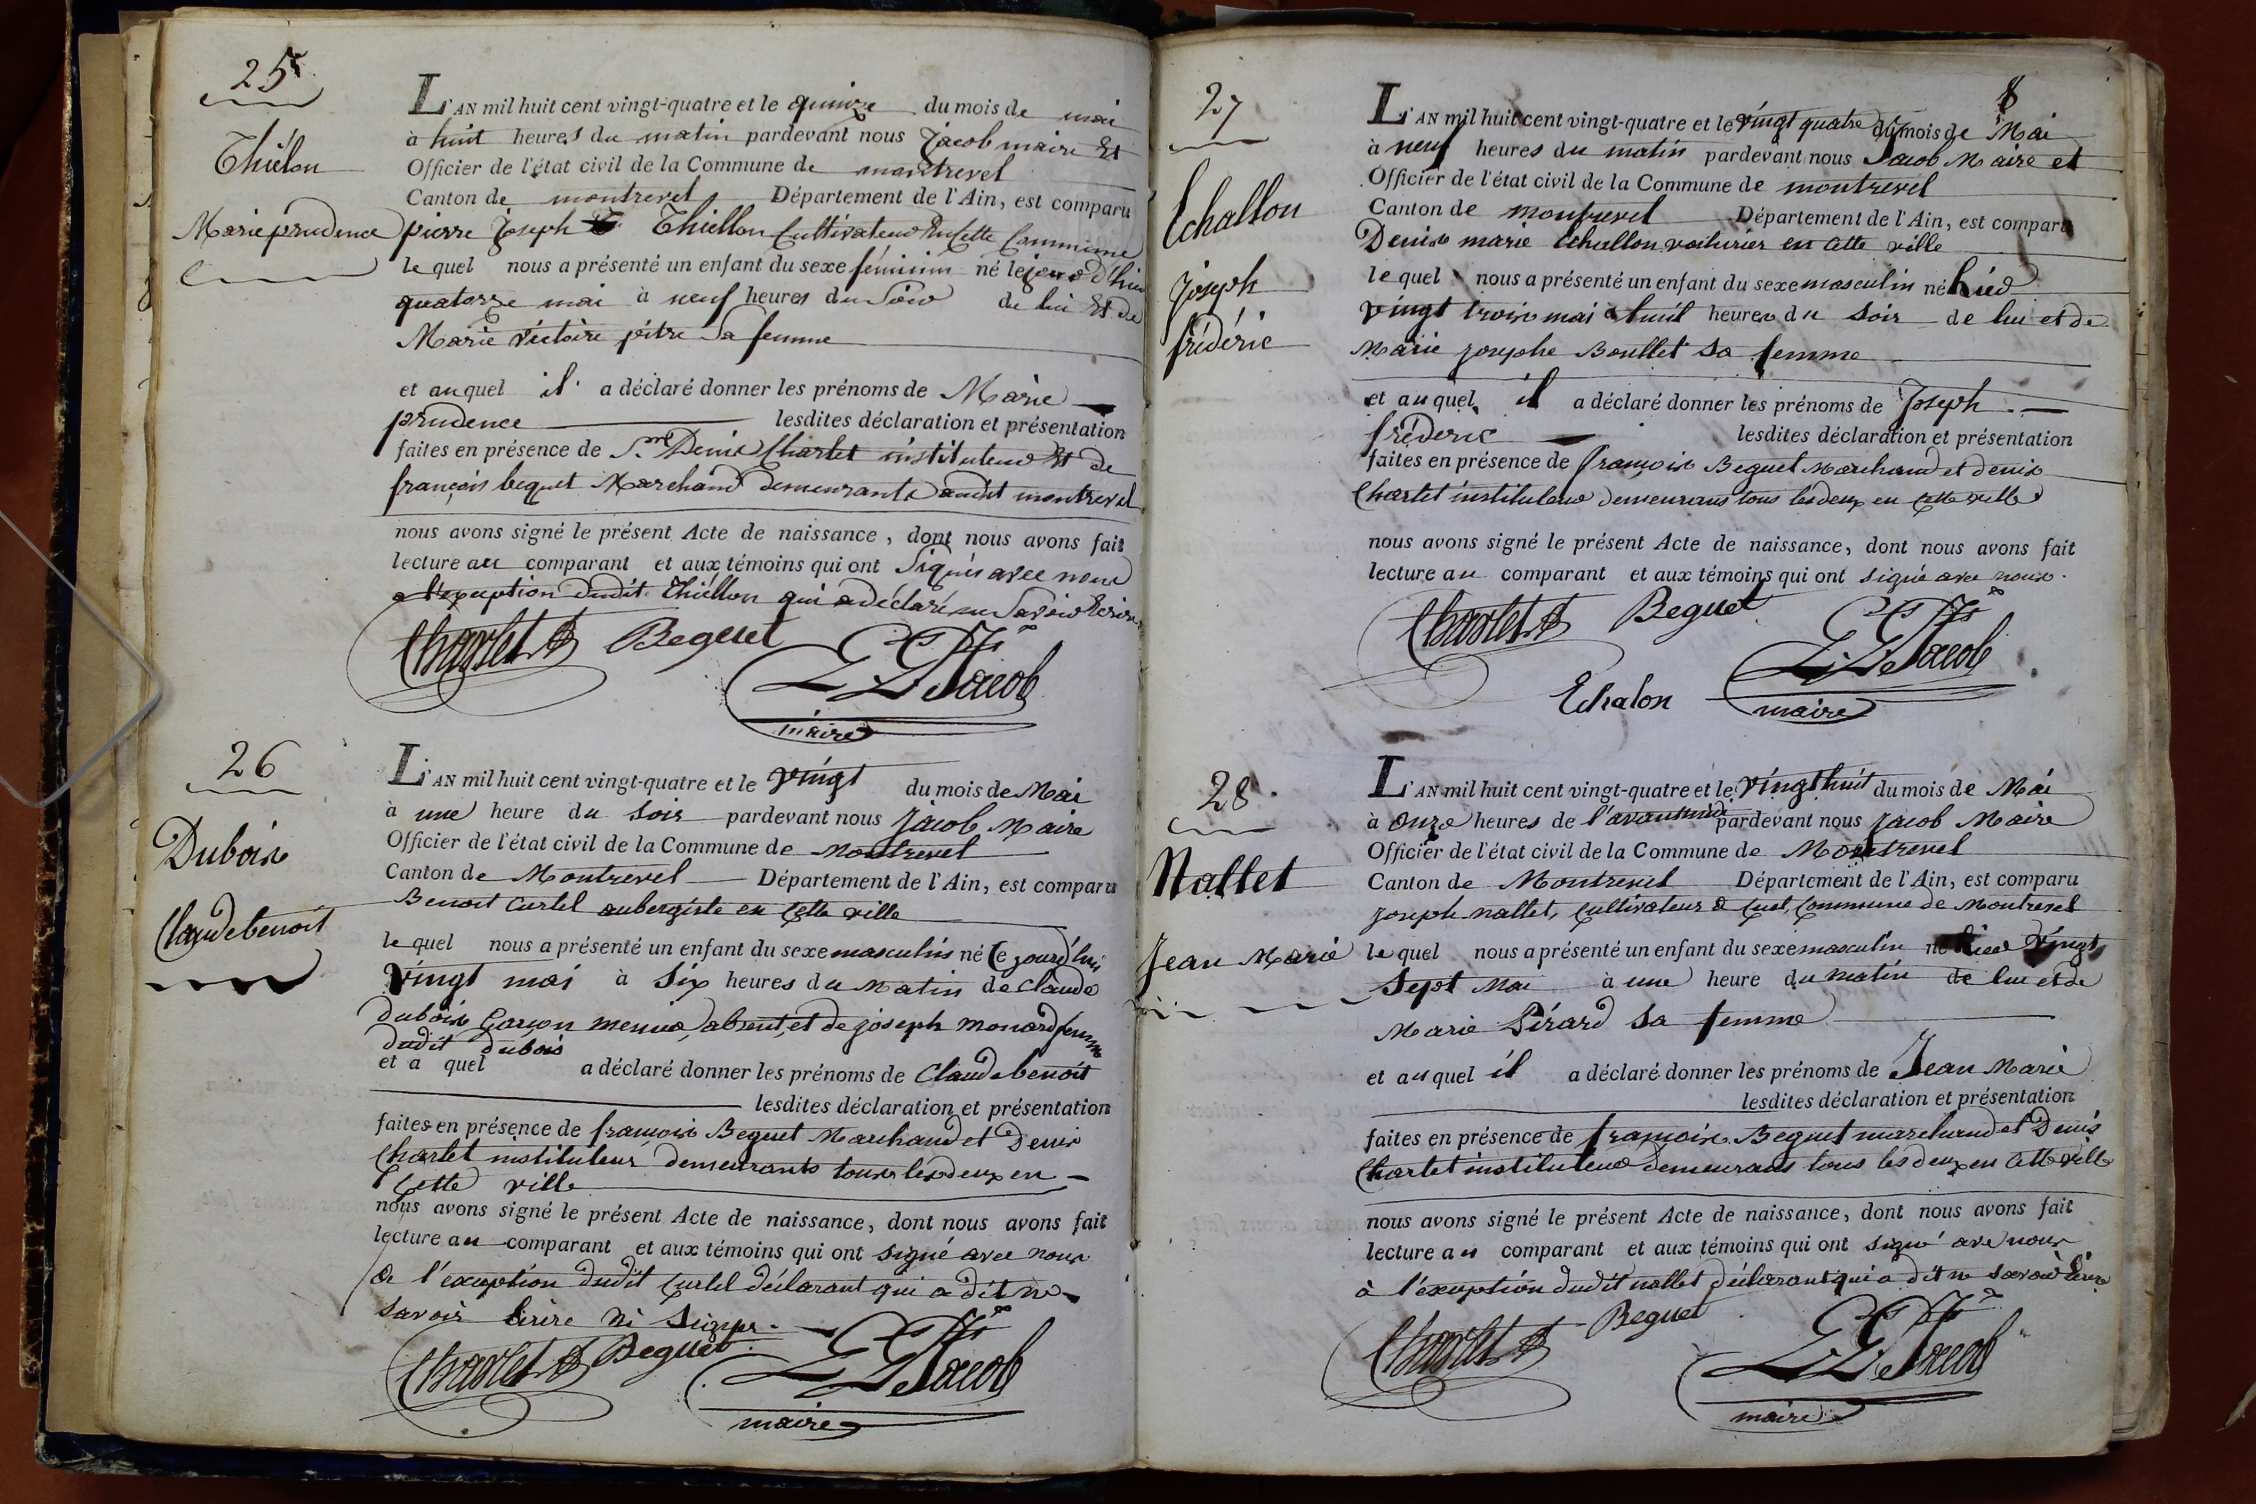 25
Thiélon
Marie prudence
L'AN mil huit cent vingt-quatre et le quinze du mois de mai
à huit heures du matin pardevant nous Jacob maire Et
Officier de l'état civil de la Commune de montrevel
Canton de montrevel Département de l'Ain, est comparu
pierre joseph Thiellon Cultivateur En Cette Commune
le quel nous a présenté un enfant du sexe féminin né le jour d'hier
quatorze mai à neuf heures du Soir de lui Et de
Marie Victoire pitre Sa femme
et au quel il a déclaré donner les prénoms de Marie
prudence lesdites déclaration et présentation
faites en présence de Sr. Denis Charlet instituteur Et de
françois bequet Marchand demeurants audit montrevel
nous avons signé le présent Acte de naissance, dont nous avons fait
lecture au comparant et aux témoins qui ont Signés avec nous
a l'exception dudit Thiéllon qui a déclaré ne Savoir Ecrire
Charlet Beguet
Jacob
maire
26
Dubois
Claude benoit
L'AN mil huit cent vingt-quatre et le vingt du mois de Mai
à une heure du soir pardevant nous Jacob Maire
Officier de l'état civil de la Commune de Montrevel
Canton de Montrevel Département de l'Ain, est comparu
Benoit Curtel aubergiste en Cette ville
le quel nous a présenté un enfant du sexe masculin né Ce jourd'hui
Vingt mai à six heures du matin de Claude
dubois absent, et de joseph Monard femme
dudit dubois
et a quel a déclaré donner les prénoms de Claude benoit
lesdites déclaration et présentation
faites en présence de françois Beguet Marchand et Denis
Charlet instituteur demeurants tous les deux en
Cette ville
nous avons signé le présent Acte de naissance, dont nous avons fait
lecture au comparant et aux témoins qui ont signé avec nous
à l'exception dudit Curtel déclarant qui a dit ne
savoir lirire ni Signer.
Charlet Beguet
Jacob
maire
8
27
Echallon
joseph
frédéric
L'AN mil huit cent vingt-quatre et le vingt quatre du mois de Mai
à neuf heures du matin pardevant nous Jacob Maire et
Officier de l'état civil de la Commune de montrevel
Canton de montrevel Département de l'Ain, est comparu
Denis marie Echallon voiturier en Cette ville
le quel nous a présenté un enfant du sexe masculin né hier
vingt trois mai à huit heures du soir de lui et de
Marie josephe Boullet sa femme
et au quel il a déclaré donner les prénoms de Joseph
fréderic lesdites déclaration et présentation
faites en présence de françois Beguet Marchand et denis
Charlet instituteur demeurans tous les deux en Cette ville
nous avons signé le présent Acte de naissance, dont nous avons fait
lecture au comparant et aux témoins qui ont signé avec nous.
Charlet Beguet
Jacob
Echalon maire
28
Nallet
Jean Marie
L'AN mil huit cent vingt-quatre et le vingt huit du mois de Mai
à onze heures de l'avant midi pardevant nous Jacob Maire
Officier de l'état civil de la Commune de Montrevel
Canton de Montrevel Département de l'Ain, est comparu
joseph nallet, Cultivateur à Cuet, Commune de Montrevel
le quel nous a présenté un enfant du sexe masculin né hier Vingt
Sept Mai à une heure du matin de lui et de
Marie Pérard sa femme
et au quel il a déclaré donner les prénoms de Jean Marie
lesdites déclaration et présentation
faites en présence de françois Beguet marchand et Denis
Charlet instituteur demeurans tous les deux en Cette ville
nous avons signé le présent Acte de naissance, dont nous avons fait
lecture au comparant et aux témoins qui ont signé avec nous
à l'exception dudit nallet déclarant qui a dit ne savoir
Charlet Beguet
Jacob
maire